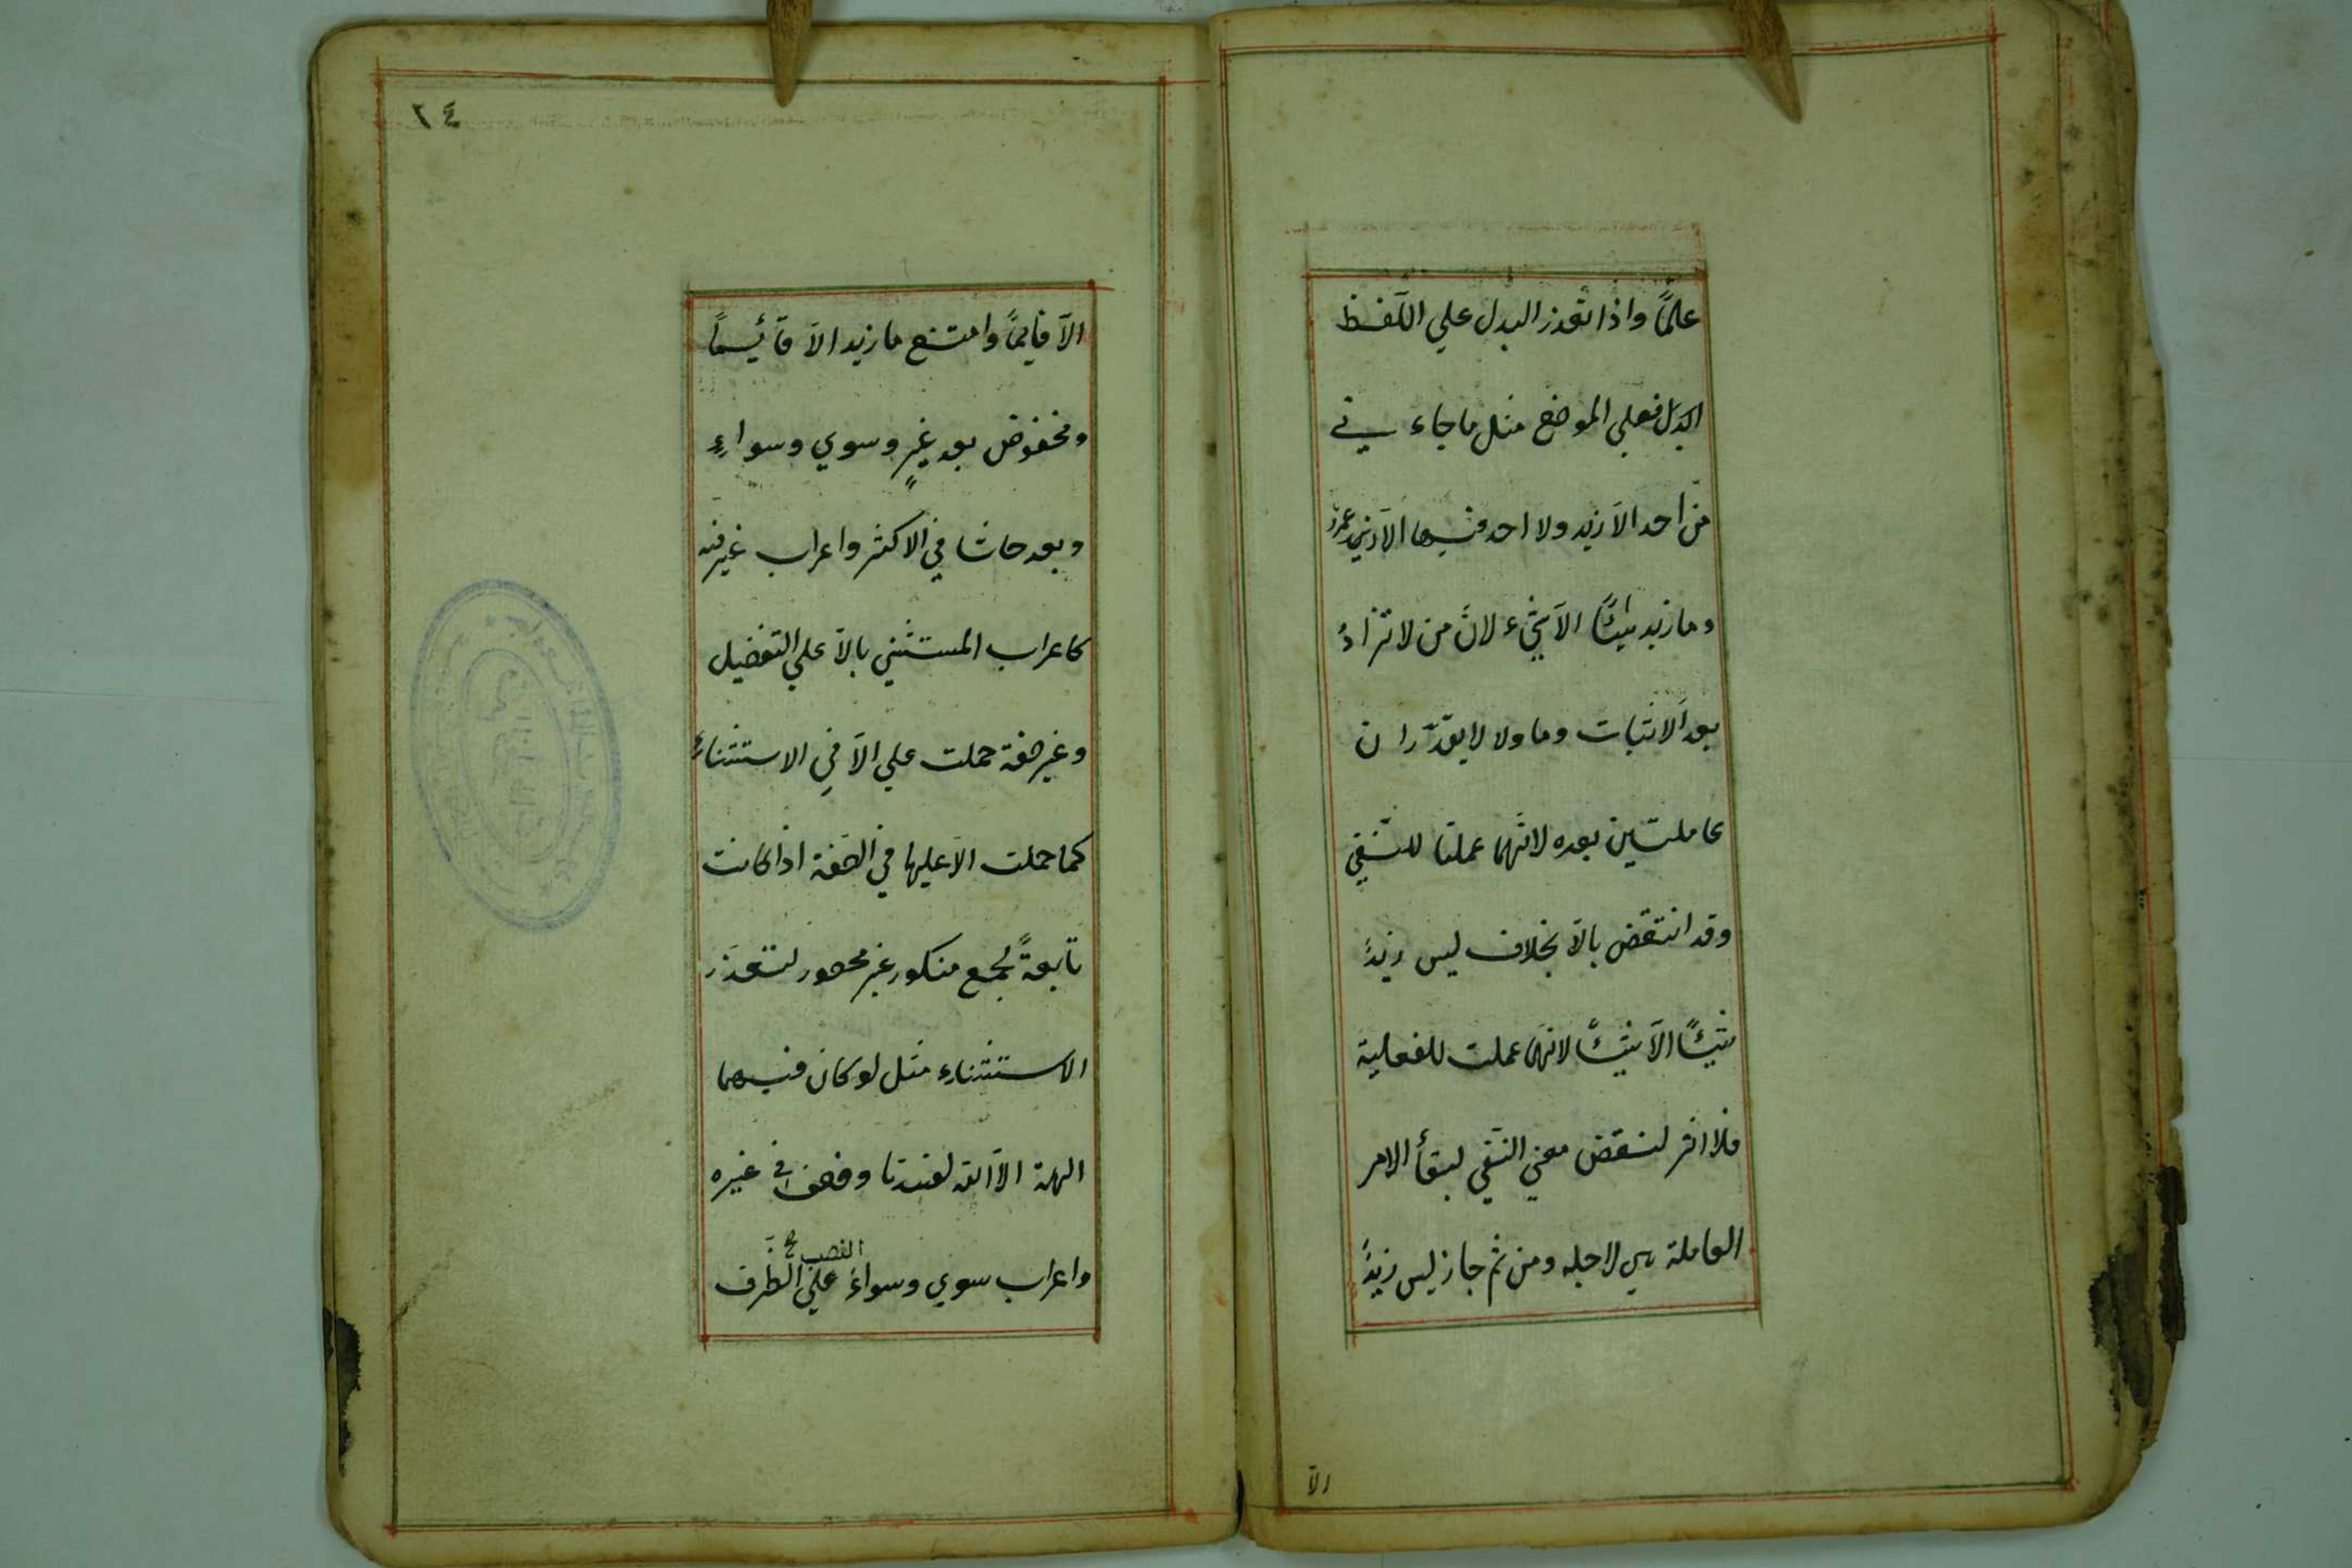 علمًا واذا تعذر البدل علي اللّفظ
ابدل فعلي الموضع مثل ما جاء ني
من احد الاّ زيد ولا احد فيها الاّ زيد عمرو
وما زيد شيئًا الاّ شيء لانّ من لا تزادُ
بعد الاثبات وما ولا لا يقدّران
عاملتين بعده لانّهما عملتا للنّفي
وقد انتقض بالاّ بخلاف ليس زيدٌ
شيئًا الاّ شيئًا لانّها عملت للفعلية
فلا اثر لنقض معني النّفي لبقأ الامر
العاملة هي لاجله ومن ثمّ جاز ليس زيدٌ
الاّ
٢٤
الاّ قايمًا وامتنع ما زيد الاّ قائيمًا
ومخفوض بعد غيرٍ وسوي وسواءٍ
وبعد حاشا في الاكثر واعراب غير فيه
كاعراب المستثني بالاّ علي التفضيل
وغير صفة حملت علي الاّ في الاستثناء
كما حملت الاّ عليها في الصّفة اذا كانت
تابعةً لجمع منكور غير محصور لتعذّر
الاستثناء مثل لو كان فيهما
الهة الاّ اللّه لفسدتا وضعف في غيره
النصب صح
واعراب سوي وسواءَ علي الظّرف